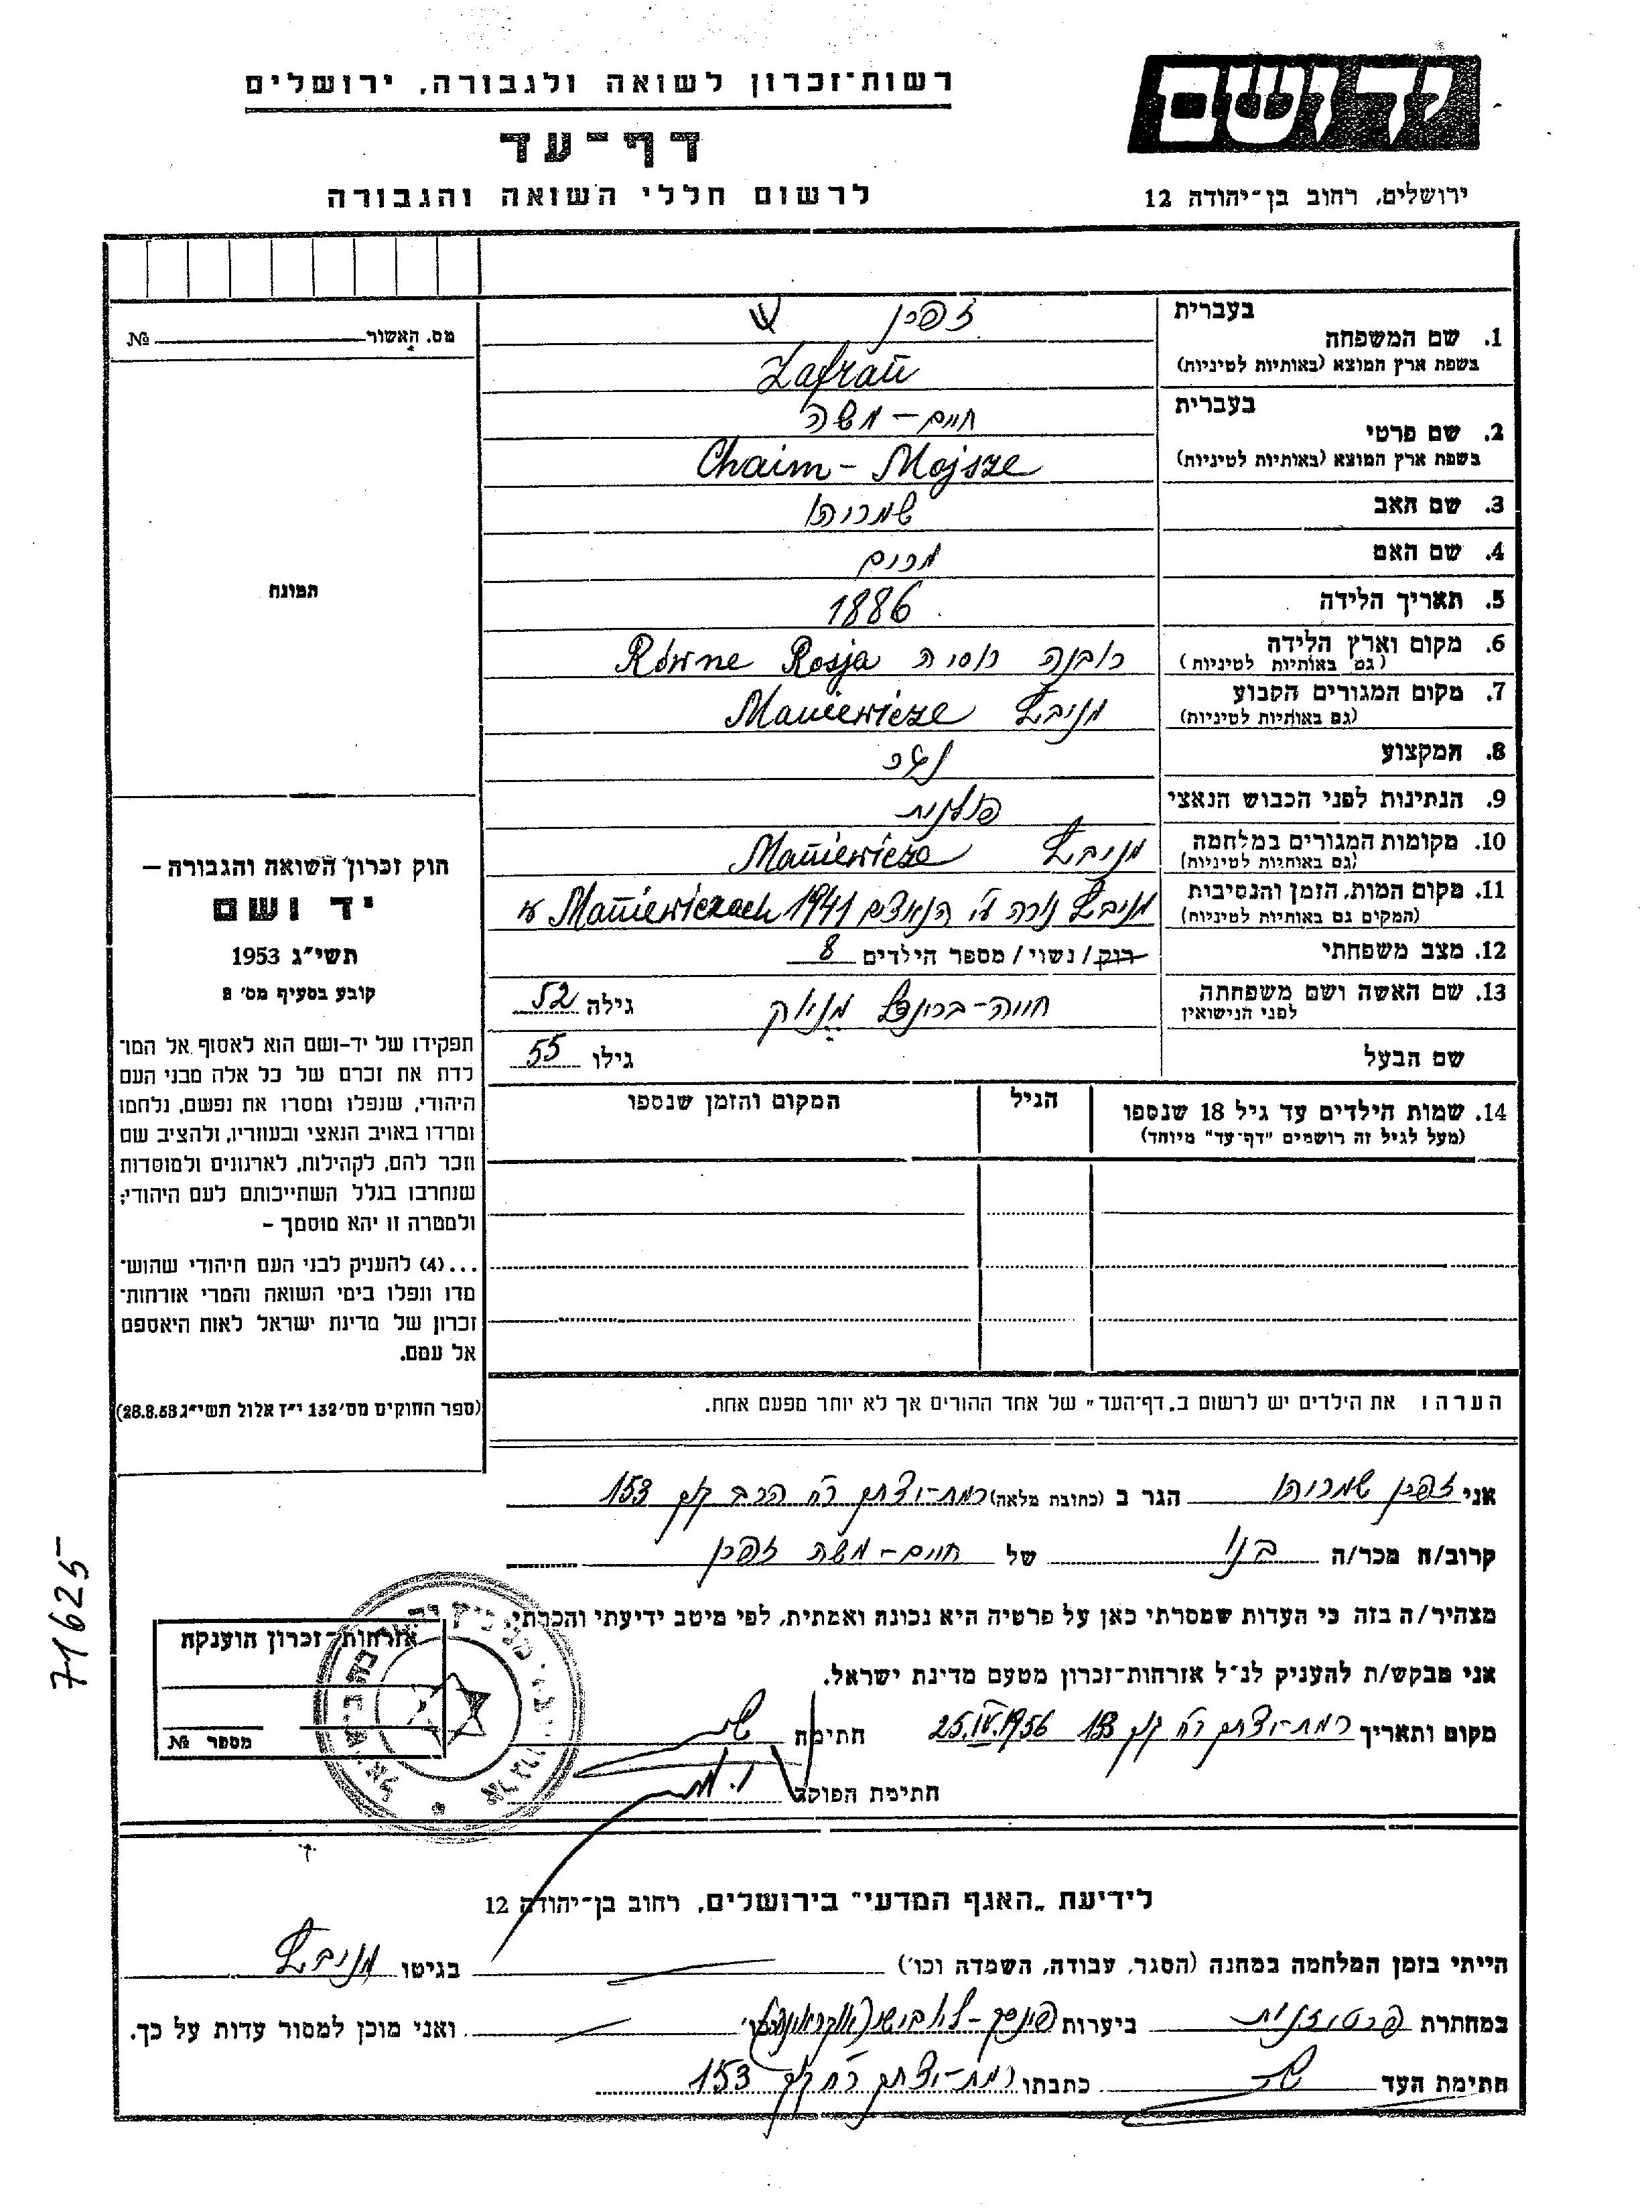 יד ושם
רשות־זכרון לשואה ולגבורה, ירושלים
דף־עד
לרשום חללי השואה והגבורה
ירושלים, רחוב בן־יהודה 12
בעברית
1. שם המשפחה
בשפת ארץ המוצא (באותיות לטיניות)
זפרן
Zafrań
בעברית
2. שם פרטי
בשפת ארץ המוצא (באותיות לטיניות)
חיים - משה
Chaim - Mojsze
3. שם האב שמריהו
4. שם האם מרים
5. תאריך הלידה 1886
6. מקום וארץ הלידה
(גם באותיות לטיניות)
רובנה רוסיה Równe Rosja
7. מקום המגורים הקבוע
(גם באותיות לטיניות)
Maniewicze
8. המקצוע נגר
9. הנתינות לפני הכבוש הנאצי פולנית
10. מקומות המגורים במלחמה
(גם באותיות לטיניות)
Maniewicze
11. מקום המות, הזמן והנסיבות
(המקום גם באותיות לטיניות)
נורה ע״י הנאצים 1941 Maniewiczach
12. מצב משפחתי רוק / נשוי / מספר הילדים 8
13. שם האשה ושם משפחתה
לפני הנישואין
גילה 52
שם הבעל גילו 55
14. שמות הילדים עד גיל 18 שנספו
(מעל לגיל זה רושמים "דף־עד" מיוחד)
הגיל
המקום והזמן שנספו
הערה! את הילדים יש לרשום ב„דף־העד" של אחד ההורים אך לא יותר מפעם אחת.
מס. האשור №
תמונה
חוק זכרון השואה והגבורה —
יד ושם
תשי״ג 1953
קובע בסעיף מס׳ 2
תפקידו של יד-ושם הוא לאסוף אל המו־
לדת את זכרם של כל אלה מבני העם
היהודי, שנפלו ומסרו את נפשם, נלחמו
ומרדו באויב הנאצי ובעוזריו, ולהציב שם
וזכר להם, לקהילות, לארגונים ולמוסדות
שנחרבו בגלל השתייכותם לעם היהודי;
ולמטרה זו יהא מוסמך —
...(4) להעניק לבני העם היהודי שהוש־
מדו ונפלו בימי השואה והמרי אזרחות־
זכרון של מדינת ישראל לאות היאספם
אל עמם.
(ספר החוקים מס׳ 132 י״ז אלול תשי״ג 28.8.53)
אני זפרן שמריהו הגר ב (כתובת מלאה) רמת-יצחק רח׳ הרב קוק 153
קרוב/ה מכר/ה בנו של חיים - משה זפרן
מצהיר/ה בזה כי העדות שמסרתי כאן על פרטיה היא נכונה ואמתית, לפי מיטב ידיעתי והכרתי.
אני מבקש/ת להעניק לנ״ל אזרחות־זכרון מטעם מדינת ישראל.
מקום ותאריך רמת-יצחק רח׳ קוק 153 25.IV.1956 חתימה
חתימת הפוקד
אזרחות־זכרון הוענקה
מספר №
71625
לידיעת „האגף המדעי" בירושלים, רחוב בן־יהודה 12
הייתי בזמן המלחמה במחנה (הסגר, עבודה, השמדה וכו׳) בגיטו
במחתרת פרטיזנית ביערות פינסק ואני מוכן למסור עדות על כך.
חתימת העד כתבתו רמת-יצחק רח׳ קוק 153